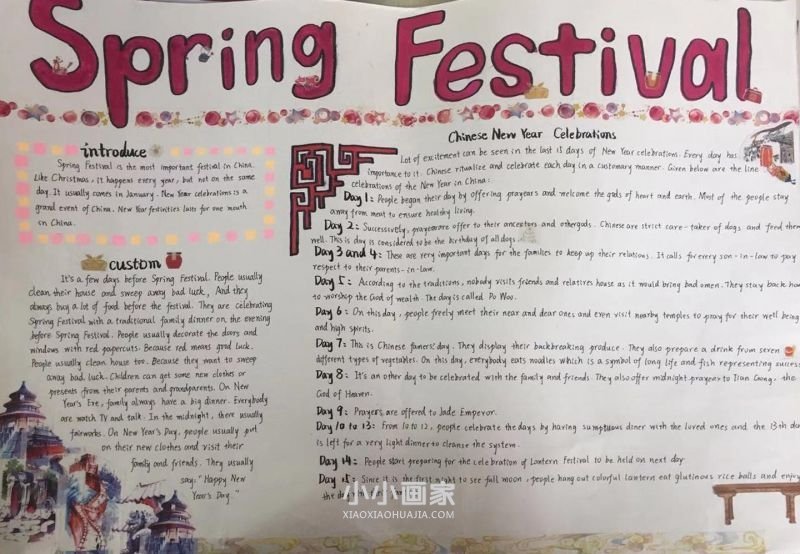 Spring Festival
introduce
Spring Festival is the most important festival in China.
Like Christmas, it happens every year, but not on the same
day. It usually comes in January. New Year celebrations is a
grand event of China. New Year festivities laits for one month
in China.
custom
It's a few days before Spring Festival. People usually
clean their house and sweep away bad luck, And they
always buy a lot of food before the festival. They are celebrating
Spring Festival with a traditional family dinner on the evening
before Spring Festival. People usually decorate the doors and
windows with red papercuts. Because red means good luck.
People usually clean house too. Because they want to sweep
away bad luck. Children can get some new clothes or
presents from their parents and grandparents. On New
Year's Eve, family always have a big dinner. Everybody
are watch TV and talk. In the midnight, there usually
fairworks. On New Year's Day, people usually put
on their new clothes and visit their
family and friends. They usually
say: "Happy New
Year's Day."
Chinese New Year Celebrations
Lot of excitement can be seen in the last 15 days of New Year celebrations. Every day has
importance to it. Chinese ritualize and celebrate each day in a customary manner. Given below are the line
celebrations of the New Year in China:
Day 1: People began their day by offering prayears and welcome the gods of heart and earth. Most of the people stay
away from meat to ensure healshy living.
Day 2: Successively, prayearare offer to their ancestors and othergods. Chinese are strict care-taker of dogs and feed them
well. This is day is considered to be the birthday of all dogs.
Day 3 and 4: These are very important days for the families to keep up their relations. It calls for every son-in-law to pay
respect to their parents-in-law.
Day 5: According to the traditions, nobody visits friends and relatires house as it mould bring bad omen. They stay back
to worship the God of wealth. The day is called Po Woo.
Day 6: On this day, people freely meet their near and dear ones and even visit nearby temples to pray for their well being
and high spirits.
Day 7: This is Chinese faners' day. They display their backbreaking produce. They also prepare a drink from seven
different types of vegetables. On this day, everybody eats noodles which is a symbol of long life and fish representing success
Day 8: It's an other day to be celebrated with the family and friends They also offer midnight prayear to Tian Gong, the
God of Heaven.
Day 9: Prayers are offered to Jade Emperor.
Day 10 to 13: From 10 to 12, people celebrate the days by having sumptuous diner with the loved ones and the 13th day
is left for a very light dinner to cleanse the system.
Day 14: People start preparing for the celebration of Lantern Festival to be held on next day
Day 15: Since it is the first night to see fall moon, people hang out colorful lantern eat glutinous rice balls and enjoy
the
小小画家
XIAOXIAOHUAJIA.COM